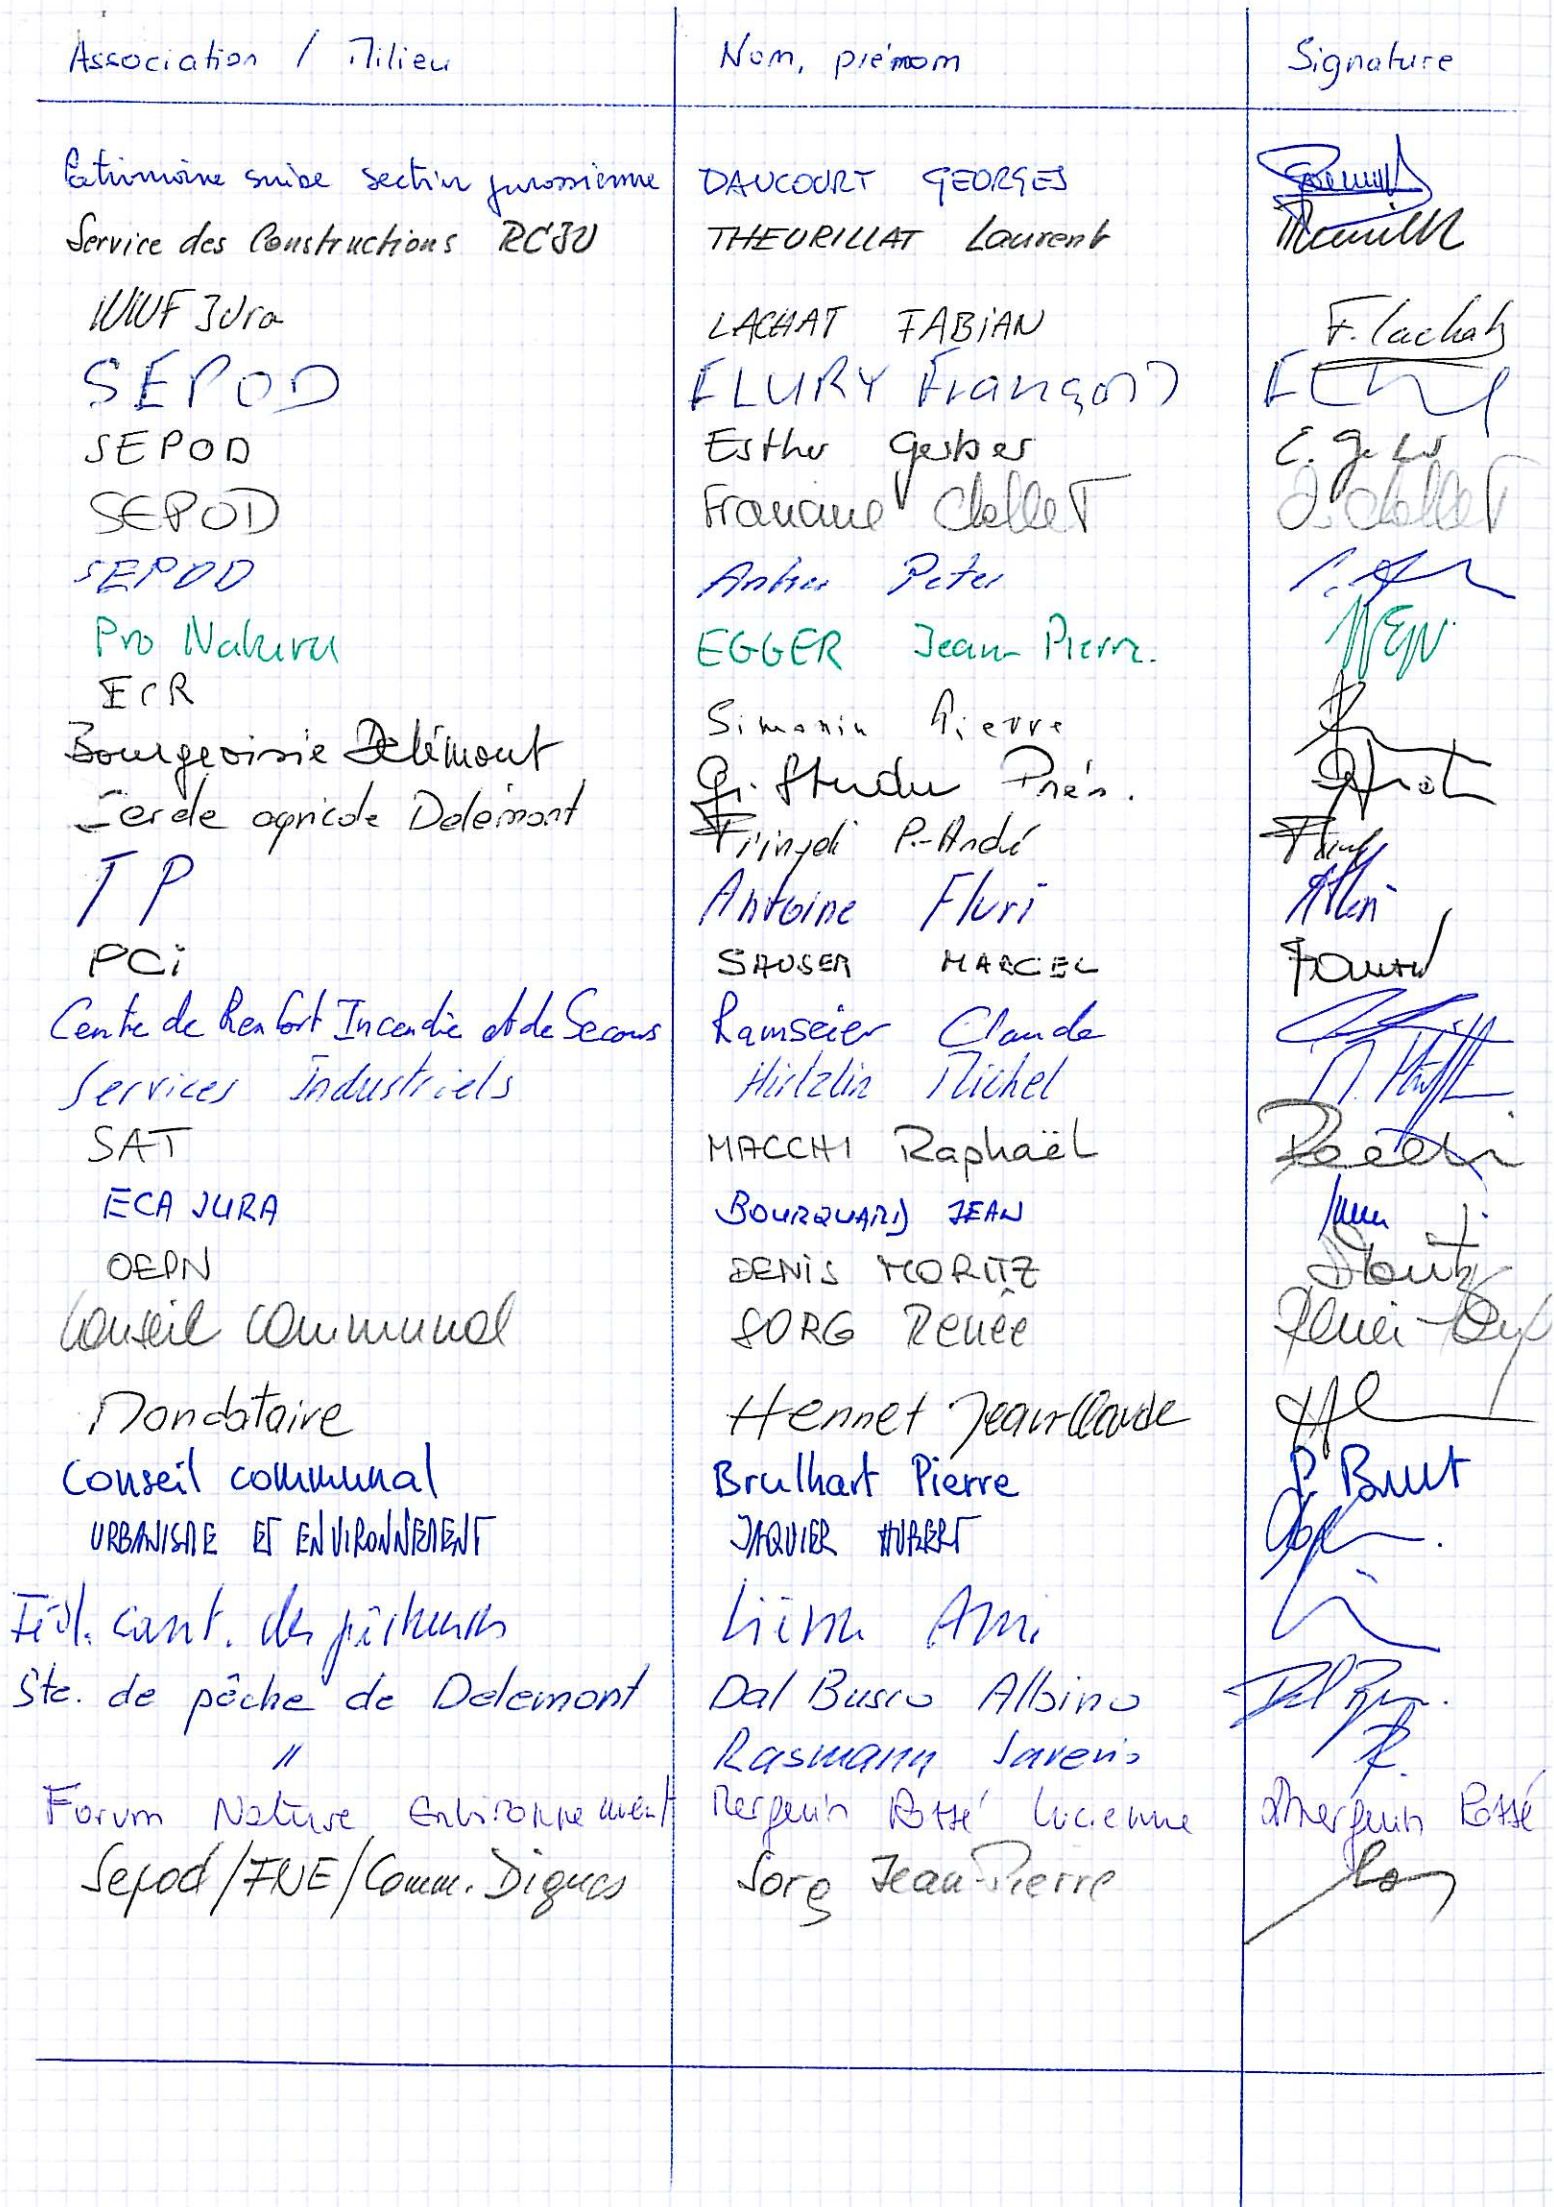 Association / Milieu Nom, prénom Signature
Patrimoine suisse section jurassienne DAUCOURT GEORGES
Service des Constructions RCJU THEURILLAT Laurent
WWF Jura LACHAT FABIAN F. Lachat
SEPOD FLURY François
SEPOD Esther Gerber E. Gerber
SEPOD Franciane Chollet F. Chollet
SEPOD Anker Peter
Pro Natura EGGER Jean-Pierre.
ECR Simonin Pierre
Bourgeoisie Delémont Studer Prés.
Cercle agricole Delémont Fringeli P.-André
TP Antoine Fluri
PCi SAUSER MARCEL
Centre de Renfort Incendie et de Secours Ramseier Claude
Services Industriels Hirtzlin Michel
SAT MACCHI Raphaël
ECA JURA BOURQUARD JEAN
OEPN DENIS MORITZ
Conseil communal SORG Renée
Mandataire Hennet Jean-Claude
Conseil communal Brulhart Pierre
URBANISME ET ENVIRONNEMENT JAQUIER HUBERT
Féd. cant. des pêcheurs Ami
Sté. de pêche de Delémont Dal Busco Albino
" Rasmann Saverio
Forum Nature Environnement Merguin Rossé Lucienne Merguin Rossé
Sepod/FNE/Comm. Digues Sorg Jean-Pierre